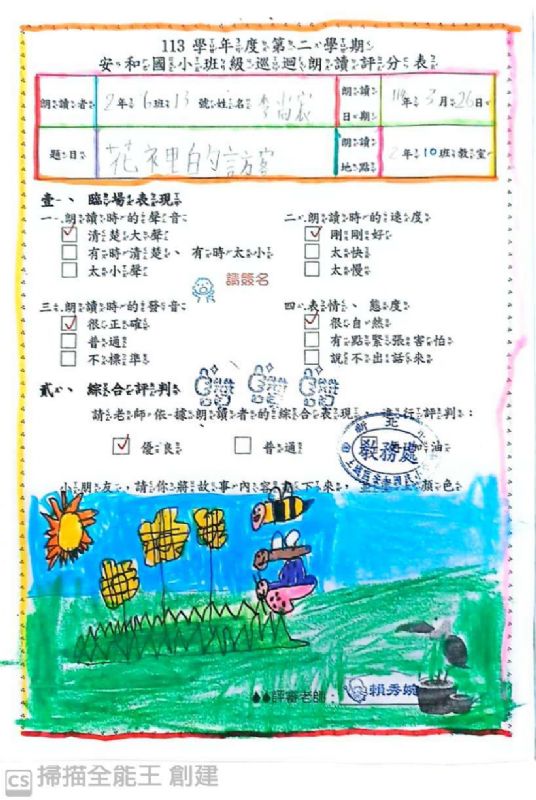 113學年度第二學期
安和國小班級巡迴朗讀評分表
朗讀者 2年6班13號姓名 李尚宸 朗讀日期 114年3月26日
題目 花裡的訪客 朗讀地點 2年10班教室
壹、臨場表現
一、朗讀時的聲音 二、朗讀時的速度
清楚大聲 剛剛好
有時清楚、有時太小 太快
太小聲 太慢
請簽名
三、朗讀時的發音 四、表情、態度
很正確 很自然
普通 有點緊張害怕
不標準 說不出話來
貳、綜合評判
請老師依據朗讀者的綜合表現,進行評判:
優良 普通 油
新北
教務處
小朋友,請你將故事內容下來,顏色
評審老師: 賴秀婉
CS 掃描全能王 創建